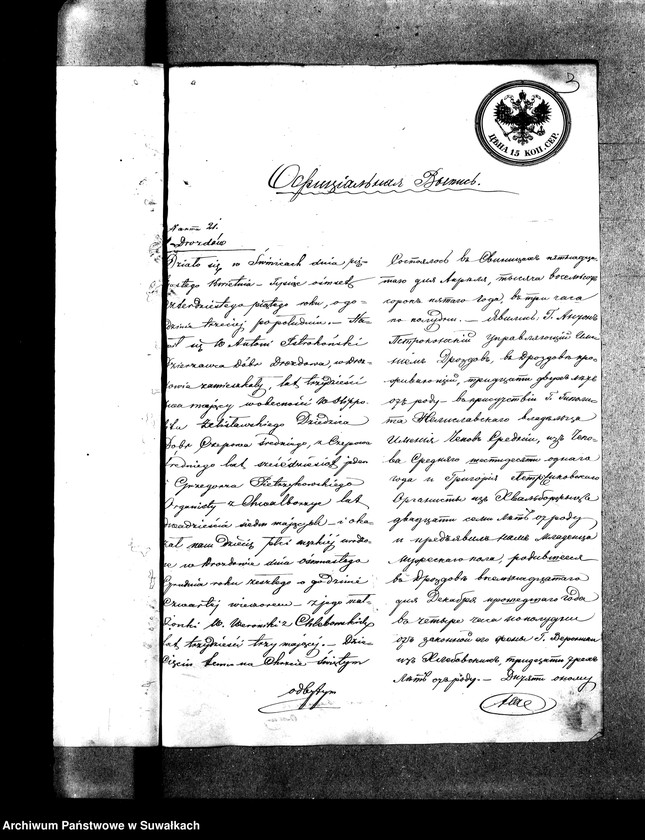 3
ЦѢНА 15 КОП. СЕР.
Оффиціальная Выпись.
N 21.
Drozdów
Działo się w Świnicach dnia pię-
Kwietnia tysiąc ośmset
czterdziestego piątego roku, o go-
dzinie trzeciej po południu. — Sta-
się W Antoni Pstrokoński
Dzierzawca Dóbr Drozdowa, w Droz-
dowie zamieszkały, lat trzydzieści
dwa mający w obecności W Hippo-
lita Dziedzica
Dóbr Czepowa średniego, z Czepowa
średniego lat sześćdziesiąt jeden
i Grzegorza Pietrzykowskiego
Organisty z Chwalborzyc lat
dwadzieścia siedm mających — i oka-
zał nam dziecię płci męzkiej urodzo-
ne w Drozdowie dnia ośmnastego
Grudnia roku zeszłego o godzinie
czwartej wieczorem — z jego mał-
żonki W. Weroniki z Chlebowskich
lat trzydzieści trzy mającej. — Dzie-
cięciu temu na Chrzcie świętym
odbytym
Состоялось въ Свиницахъ пятнадца-
таго дня Апрѣля, тысяча восемьсотъ
сорокъ пятаго года, въ три часа
по полудни. — Явился Г. Антонъ
Пстроконскій управляющій Имѣ-
ніемъ Дроздовъ, въ Дроздовѣ про-
живающій, тридцати двухъ лѣтъ
отъ роду въ присутствіи Г. Гиполи-
та владѣльца
Имѣнія Чеповъ Средній, изъ Чепо-
ва Средняго шестидесяти одного
года и Григорія Петриковскаго
Органиста изъ Хвальборжица
двадцати семи лѣтъ отъ роду
и предъявилъ намъ младенца
мужескаго пола, родившагося
въ Дроздовѣ восемнадцатаго
дня Декабря прошедшаго года
въ четыре часа по полудни
отъ законной его жены Г. Вероники
изъ Хлебовскихъ, тридцати трехъ
лѣтъ отъ роду. — Дитяти оному
Archiwum Państwowe w Suwałkach